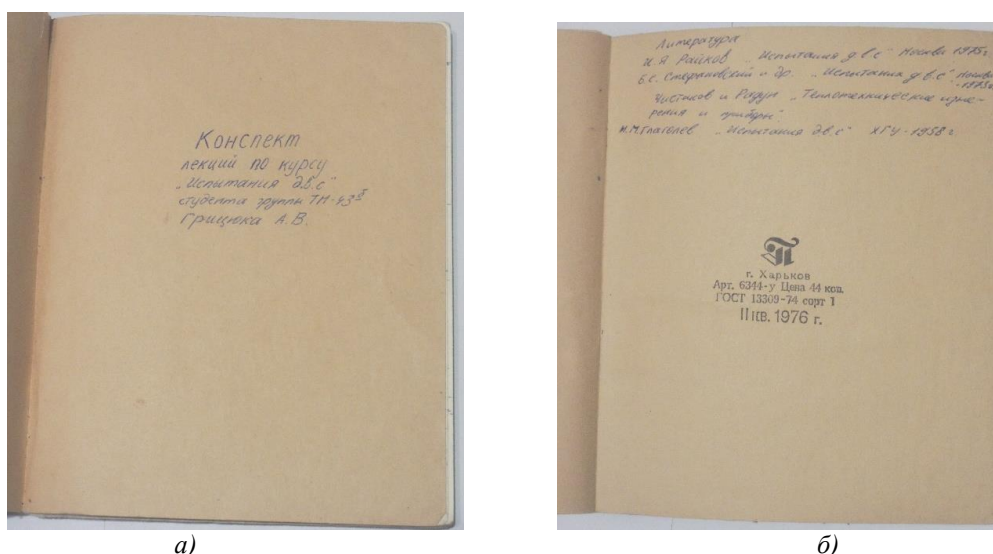 Конспект
лекций по курсу
„Испытания д.в.с"
студента группы ТМ-43
Грицюка А.В.
а)
Литература
И.Я Райков „Испытания д.в.с" Москва 1975г.
Б.С. Стефановский и др. „Испытания д.в.с" Москва
-1973г
Чистяков и Радун „Теплотехнические изме-
рения и приборы"
Н.М.Глаголев „Испытания д.в.с" ХГУ-1958 г
г. Харьков
Арт. 6344-у Цена 44 коп.
ГОСТ 13309-74 сорт 1
II кв. 1976 г.
б)